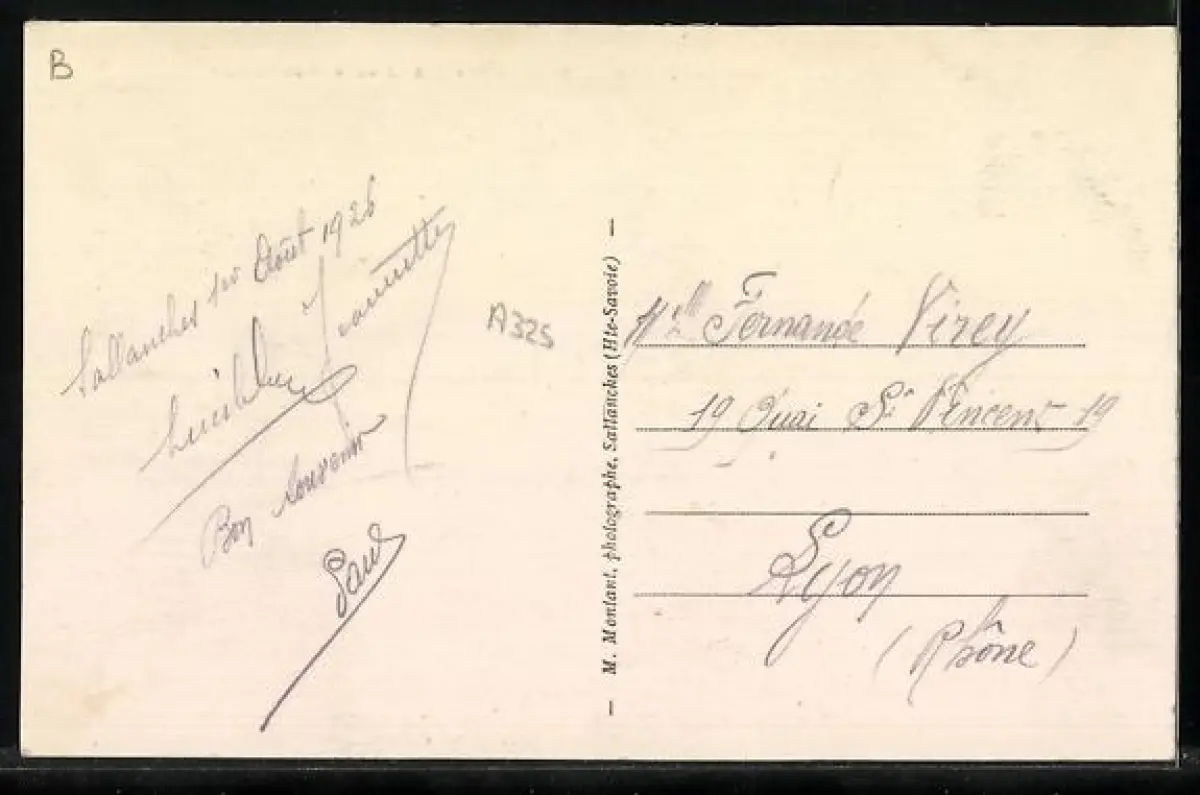 B
Sallanches 1er Août 1926
Jeannette
Bon souvenir
Paul
A325
— M. Montant, photographe, Sallanches (Hte-Savoie) —
Mlle Fernande Virey
19 Quai St Vincent 19
Lyon
(Rhône)